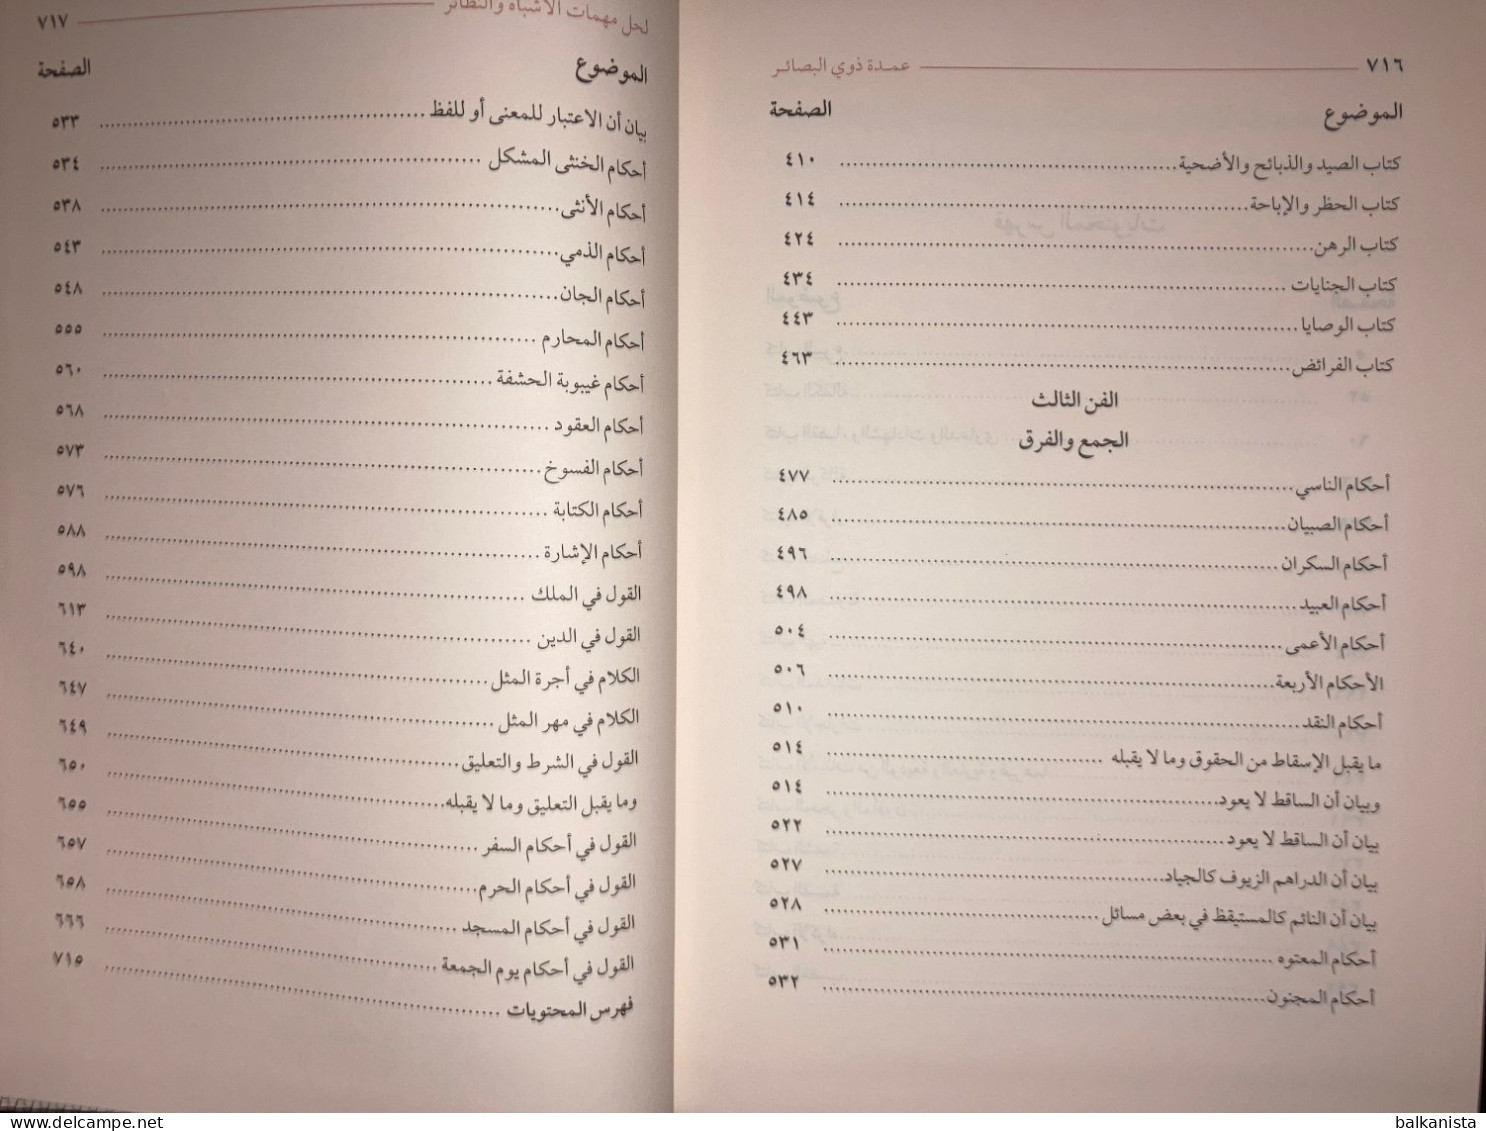 ٧١٦ عمدة ذوي البصائر
الموضوع الصفحة
كتاب الصيد والذبائح والأضحية ٤١٠
كتاب الحظر والإباحة ٤١٤
كتاب الرهن ٤٢٤
كتاب الجنايات ٤٣٤
كتاب الوصايا ٤٤٣
كتاب الفرائض ٤٦٣
الفن الثالث
الجمع والفرق
أحكام الناسي ٤٧٧
أحكام الصبيان ٤٨٥
أحكام السكران ٤٩٦
أحكام العبيد ٤٩٨
أحكام الأعمى ٥٠٤
الأحكام الأربعة ٥٠٦
أحكام النقد ٥١٠
ما يقبل الإسقاط من الحقوق وما لا يقبله ٥١٤
وبيان أن الساقط لا يعود ٥١٤
بيان أن الساقط لا يعود ٥٢٢
بيان أن الدراهم الزيوف كالجياد ٥٢٧
بيان أن النائم كالمستيقظ في بعض مسائل ٥٢٨
أحكام المعتوه ٥٣١
أحكام المجنون ٥٣٢
لحل مهمات الأشباه والنظائر ٧١٧
الموضوع الصفحة
بيان أن الاعتبار للمعنى أو للفظ ٥٣٣
أحكام الخنثى المشكل ٥٣٤
أحكام الأنثى ٥٣٨
أحكام الذمي ٥٤٣
أحكام الجان ٥٤٨
أحكام المحارم ٥٥٥
أحكام غيبوبة الحشفة ٥٦٠
أحكام العقود ٥٦٨
أحكام الفسوخ ٥٧٣
أحكام الكتابة ٥٧٦
أحكام الإشارة ٥٨٨
القول في الملك ٥٩٨
القول في الدين ٦١٣
الكلام في أجرة المثل ٦٤٠
الكلام في مهر المثل ٦٤٧
القول في الشرط والتعليق ٦٤٩
وما يقبل التعليق وما لا يقبله ٦٥٠
القول في أحكام السفر ٦٥٥
القول في أحكام الحرم ٦٥٧
القول في أحكام المسجد ٦٥٨
القول في أحكام يوم الجمعة ٦٦٦
فهرس المحتويات ٧١٥
www.delcampe.net balkanista